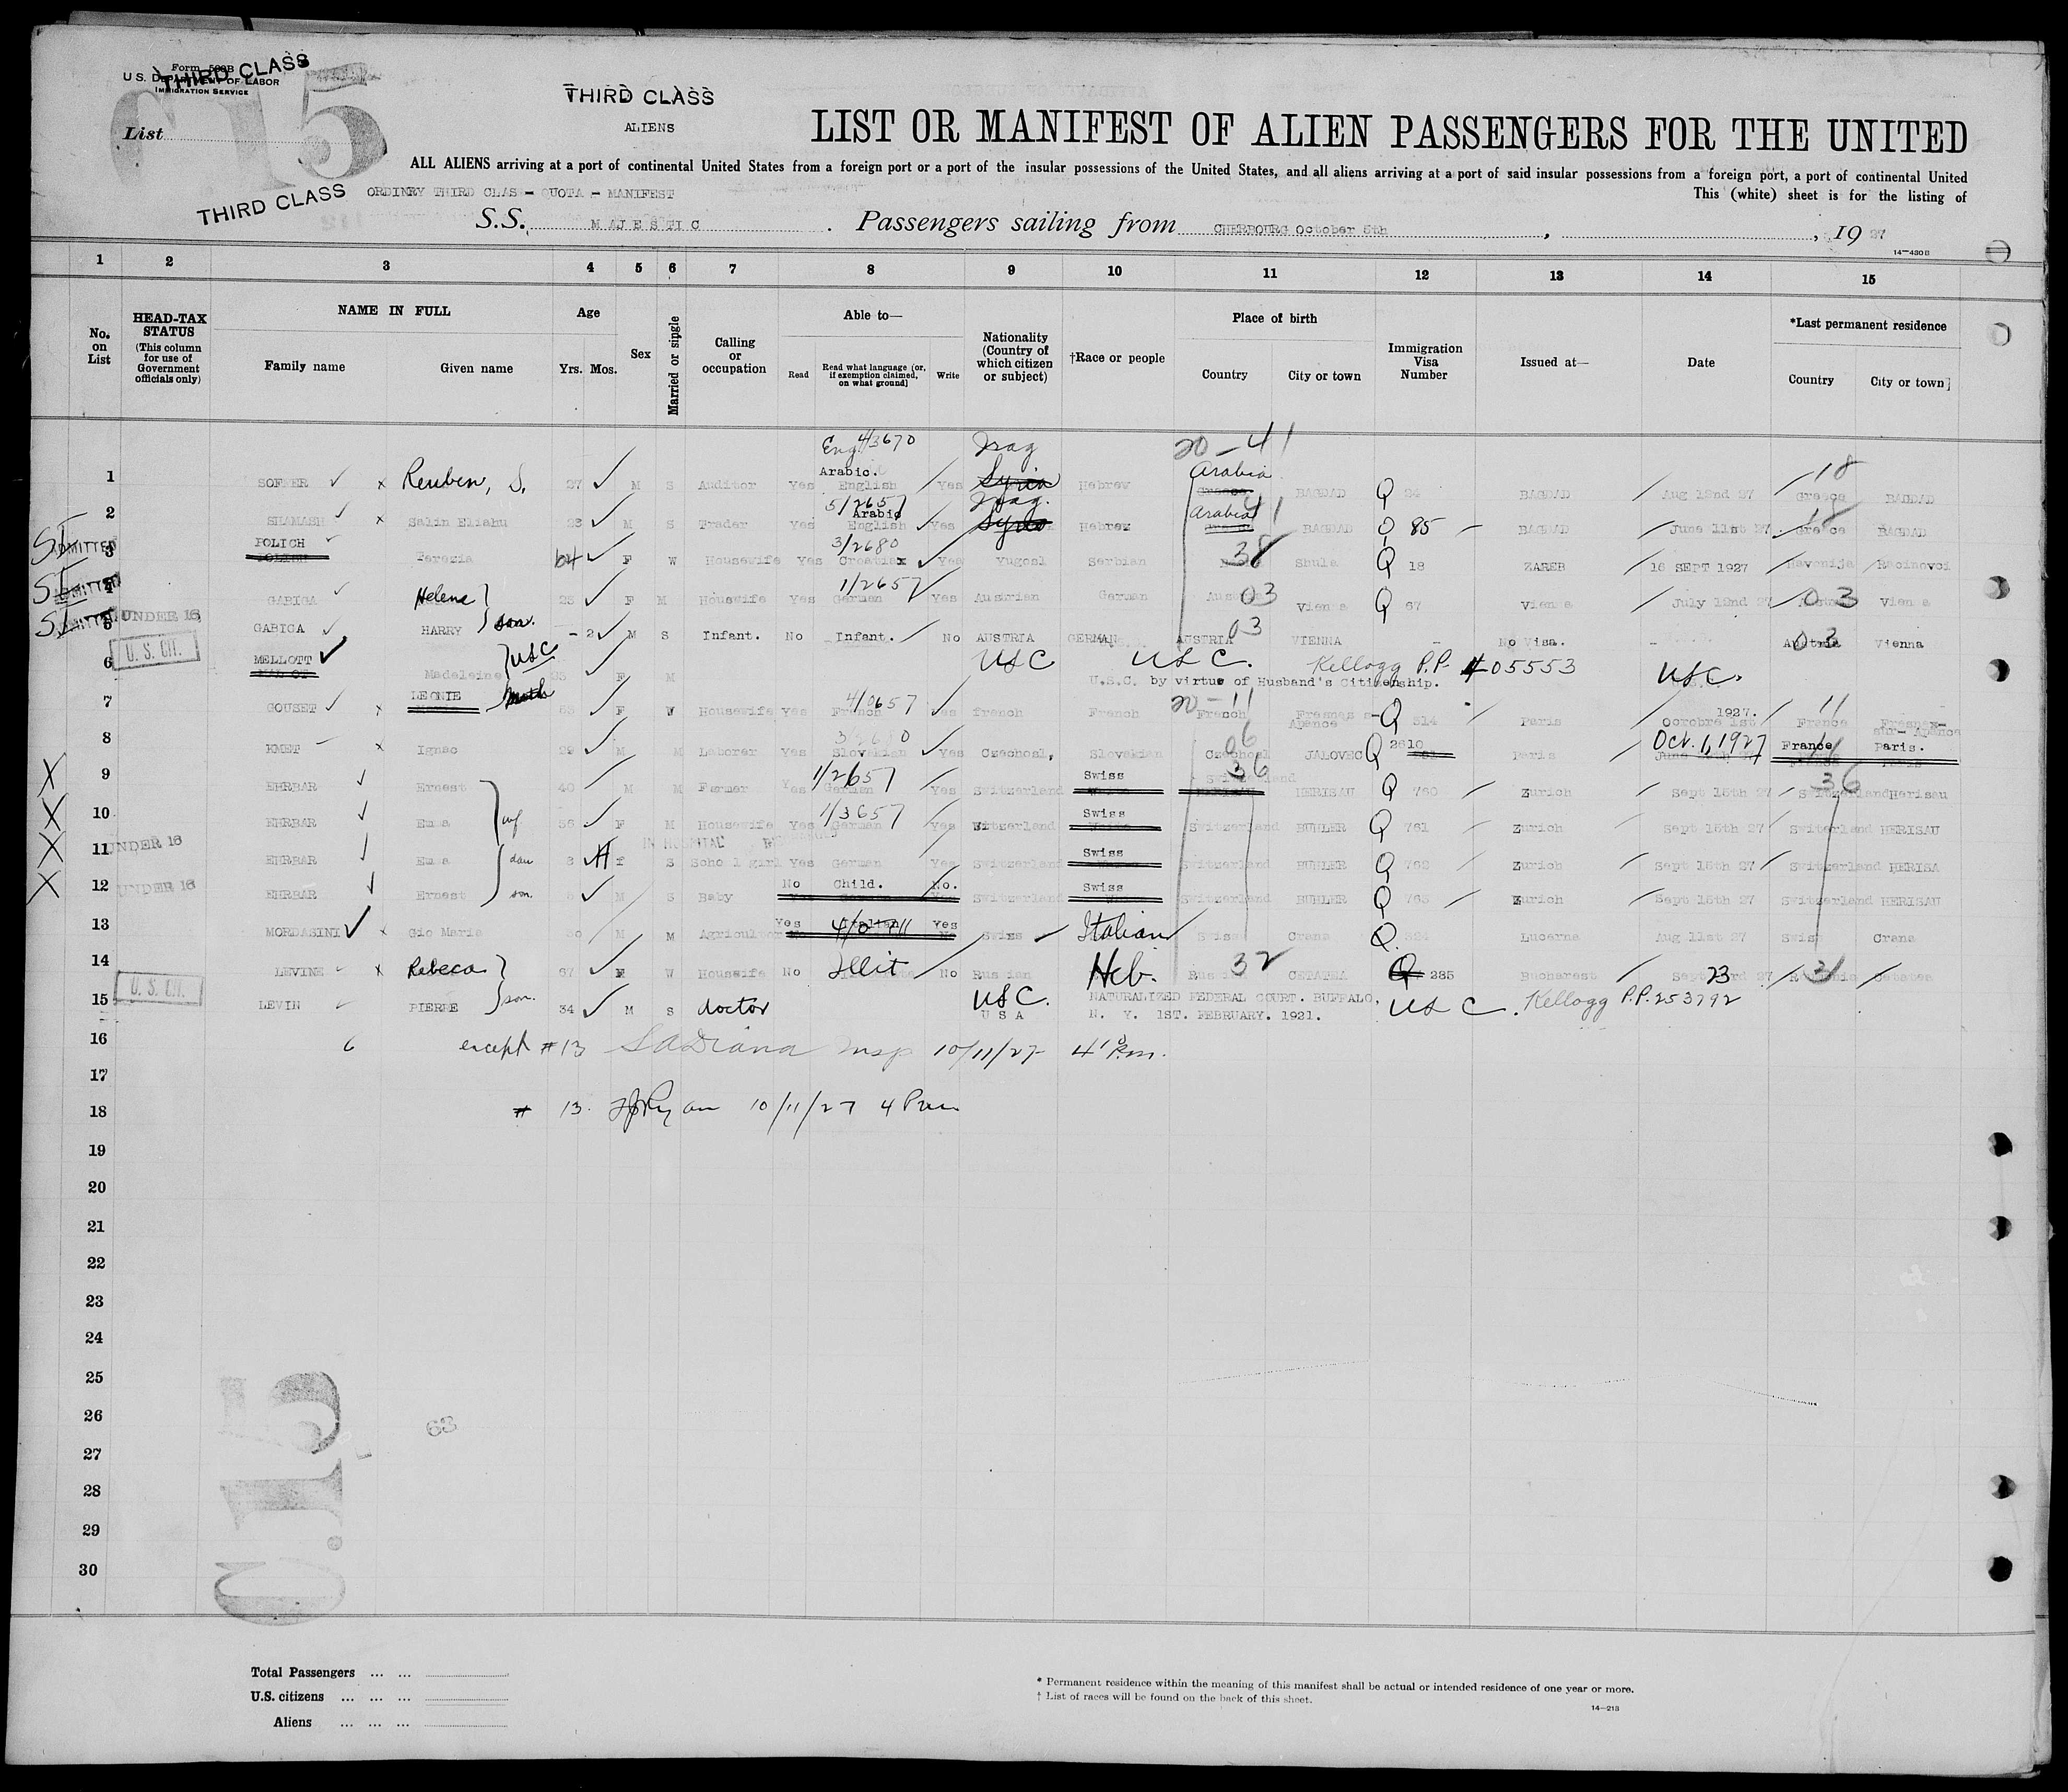 Form 500B
U. S. DEPARTMENT OF LABOR
IMMIGRATION SERVICE
THIRD CLASS
C 15
List
THIRD CLASS
ALIENS
LIST OR MANIFEST OF ALIEN PASSENGERS FOR THE UNITED
ALL ALIENS arriving at a port of continental United States from a foreign port or a port of the insular possessions of the United States, and all aliens arriving at a port of said insular possessions from a foreign port, a port of continental United
This (white) sheet is for the listing of
THIRD CLASS ORDINRY THIRD CLAS - QUOTA - MANIFEST
S.S. MAJESTIC . Passengers sailing from CHERBOURG October 5th , , 19 27
14-430B
1 2 3 4 5 6 7 8 9 10 11 12 13 14 15
No. on List
HEAD-TAX STATUS (This column for use of Government officials only)
NAME IN FULL Family name Given name
Age Yrs. Mos.
Sex
Married or single
Calling or occupation
Able to— Read Read what language (or, if exemption claimed, on what ground) Write
Nationality (Country of which citizen or subject)
†Race or people
Place of birth Country City or town
Immigration Visa Number
Issued at—
Date
*Last permanent residence Country City or town
Eng 4/3670 Iraq 20-41
1 SOFAER x Reuben, S. 27 M S Auditor Yes Arabic. English Yes Syria Hebrew Arabia Greece BAGDAD Q BAGDAD Aug 12nd 27 18 Greece BAGDAD
5/2657 Iraq.
2 SHAMASH x Salin Eliahu 23 M S Trader Yes Arabic English Yes Syria Hebrew Arabia 41 BAGDAD Q 85 BAGDAD June 11st 27 18 Greece BAGDAD
3/2680
SI ADMITTED 3 POLICH 64 F W Housewife Yes Croatian Yes Yugosl Serbian 38 Shula Q 18 ZAREB 16 SEPT 1927 Racinovci
1/2657
SI ADMITTED 4 GABIGA Helene 23 F M Housewife Yes German Yes Austrian German 03 Vienna Q 67 Vienna July 12nd 27 03 Vienna
SI ADMITTED 5 UNDER 16 GABIGA HARRY son. - 2 M S Infant. No Infant. No AUSTRIA GERMAN AUSTRIA 03 VIENNA - No Visa. - Austria 03 Vienna
6 U. S. CIT. MELLOTT Madeleine USC 23 F M USC USC. Kellogg P.P. #05553 USC.
U.S.C. by virtue of Husband's Citizenship.
7 GOUSET x LEONIE Moth F W Housewife Yes 4/0657 French Yes french French 20-11 French Fresnes s- Apance Q 314 Paris 1927. Octobre 1st 11 France Fresnes- sur- Apance
8 KMET x Ignac 29 M M Laborer Yes Slovakian Yes Czechosl, Slovakian 06 Czechosl JALOVEC Q 2610 Paris Oct. 1, 1927 France Paris.
X 9 EHRBAR Ernest 40 M M Farmer Yes 1/2657 German Yes Switzerland Swiss 36 Switzerland HERISAU Q 760 Zurich Sept 15th 27 36 Switzerland Herisau
X 10 EHRBAR Emma wf 36 F M Housewife Yes 1/3657 German Yes Switzerland Swiss Switzerland BUHLER Q 761 Zurich Sept 15th 27 Switerland HERISAU
IN HOSPITAL
X 11 UNDER 16 EHRBAR Emma dau 8 H f S School girl Yes German Yes Switzerland Swiss Switzerland BUHLER Q 762 Zurich Sept 15th 27 Switzerland HERISA
X 12 UNDER 16 EHRBAR Ernest son M S Baby No Child. No. Switzerland Swiss Switzerland BUHLER Q 763 Zurich Sept 15th 27 Switzerland HERISAU
13 MORDASINI x Gio Maria 30 M M Agricultor Yes Italian Yes Swiss Italian Swiss Crana Q. 324 Lucerna Aug 11st 27 Swiss Crana
14 LEVINE x Rebeca 67 F W Housewife No Illit No Russian Heb. 32 Q 285 Bucharest Sept 23rd 27 31
15 U. S. CIT. LEVIN PIERRE son. 34 M S doctor USC. USA NATURALIZED FEDERAL COURT. BUFFALO, N. Y. 1ST. FEBRUARY. 1921. USC. Kellogg P.P. 253792
16 6 except #13 Insp 10/11/27 4 P.m.
17
18 # 13. Ryan 10/11/27 4 Pm
19
20
21
22
23
24
25
26
27
28
29
30
63
C.15
Total Passengers ... ...
U.S. citizens ... ... ...
Aliens ... ... ...
* Permanent residence within the meaning of this manifest shall be actual or intended residence of one year or more.
† List of races will be found on the back of this sheet.
14-213